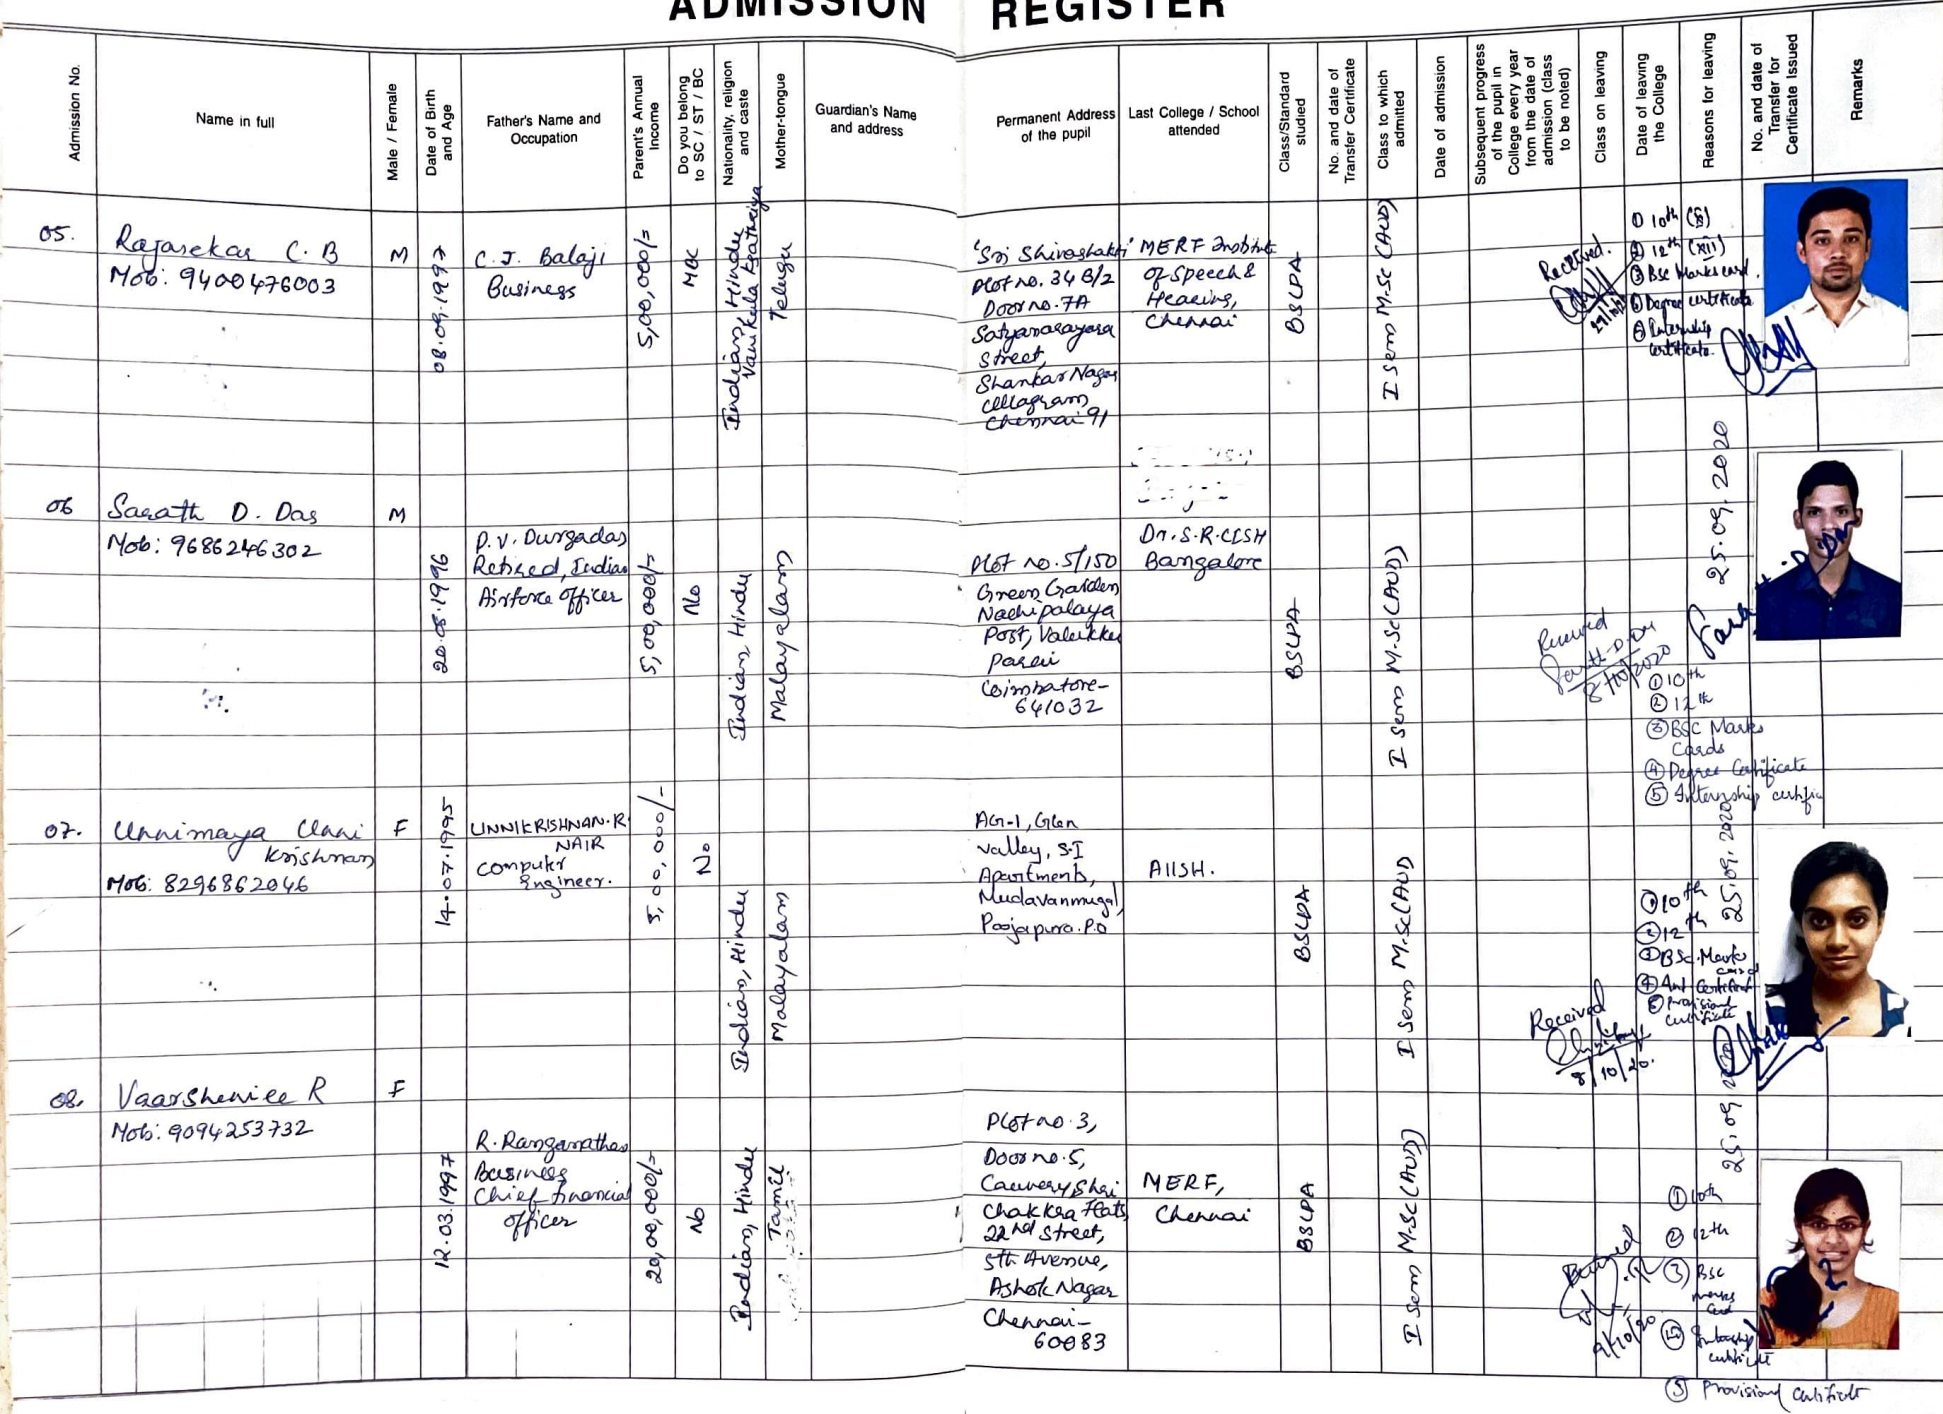 ADMISSION REGISTER
Admission No.
Name in full
Male / Female
Date of Birth and Age
Father's Name and Occupation
Parent's Annual Income
Do you belong to SC / ST / BC
Nationality, religion and caste
Mother-tongue
Guardian's Name and address
Permanent Address of the pupil
Last College / School attended
Class/Standard studied
No. and date of Transfer Certificate
Class to which admitted
Date of admission
Subsequent progress of the pupil in College every year from the date of admission (class to be noted)
Class on leaving
Date of leaving the College
Reasons for leaving
No. and date of Transfer for Certificate Issued
Remarks
05.
Rajasekar C. B
Mob: 9400476003
M
08.09.1997
C. J. Balaji
Business
5,00,000/=
MBC
Indian, Hindu
Telugu
'Sri Shivashakti'
Plot no. 34 B/2
Door no. 7A
Satyanarayana
Street,
Shankar Nagar
Chennai 91
MERF Institute
of Speech &
Hearing,
Chennai
BSLPA
I Sem M.Sc (AUD)
Received.
① 10th (X)
② 12th (XII)
③ Bsc Marks card.
④ Degree certificate
⑤ Internship
certificate.
06
Sarath D. Das
Mob: 9686246302
M
20.08.1996
D. V. Durgadas
Retired, Indian
Airforce officer
5,00,000/=
No
Indian, Hindu
Malayalam
Plot no. 5/150
Green Garden
Nachipalaya
Post,
Coimbatore-
641032
Dr. S.R.CISH
Bangalore
BSLPA
I Sem M.Sc (AUD)
25.09.2020
Received
Sarath D. Das
8/10/2020
① 10th
② 12th
③ BSC Marks
Cards
④ Degree Certificate
⑤ Internship certific
07.
Unnimaya Unni
Krishnan
Mob: 8296862046
F
14.07.1995
UNNIKRISHNAN. R
NAIR
Computer
Engineer.
5,00,000/-
No
Indian, Hindu
Malayalam
AG-1, Glen
Valley, S.I
Apartments,
Mudavanmugal,
Poojapura. P.O
AIISH.
BSLPA
I Sem M.Sc (AUD)
25.09.2020
Received
8/10/20.
① 10th
② 12th
③ BSc. Marks
card
⑤ Provisional
certificate
08.
Vaarsheniee R
Mob: 9094253732
F
12.03.1997
R. Ranganathan
Business
Chief financial
officer
20,00,000/=
No
Indian, Hindu
Tamil
Plot no. 3,
Door no. 5,
Cauvery Shri
Chakkra Flats,
22nd Street,
5th Avenue,
Ashok Nagar
Chennai-
60083
MERF,
Chennai
BSLPA
I Sem M.Sc (AUD)
25.09
9/10/20
① 10th
② 12th
③ BSC
marks
card
④ Internship
certificate
⑤ Provisional certificate